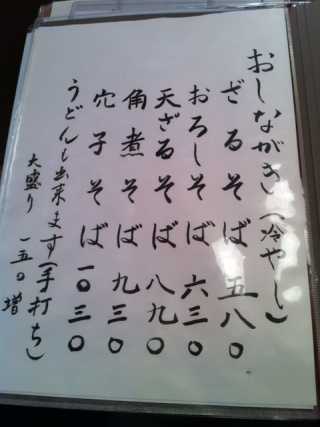 おしながき(冷やし)
ざるそば 五八〇
おろしそば 六三〇
天ざるそば 八九〇
角煮そば 九三〇
穴子そば 一〇三〇
うどんも出来ます(手打ち)
大盛り 一五〇増